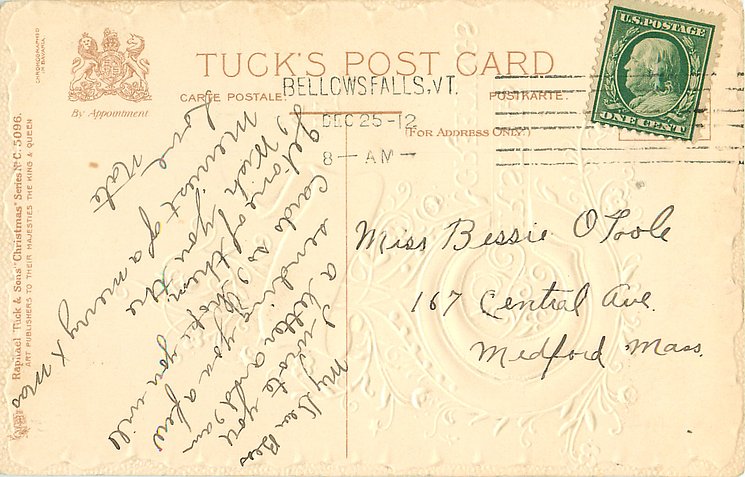 CHROMOGRAPHED
IN BAVARIA
By Appointment
TUCK'S POST CARD
CARTE POSTALE.
POSTKARTE.
(FOR ADDRESS ONLY.)
BELLOWS FALLS, VT.
DEC 25-12
8 - AM
U.S. POSTAGE
ONE CENT
Raphael Tuck & Sons' "Christmas" Series No C. 5096.
ART PUBLISHERS TO THEIR MAJESTIES THE KING & QUEEN
My Dear Bess
I wrote you
a letter and I am
sending you a few
Cards so I hope you will
get one of them,
Wish you the
Merriest of a merry X mas
Love
Miss Bessie O'Toole
167 Central Ave.
Medford Mass.